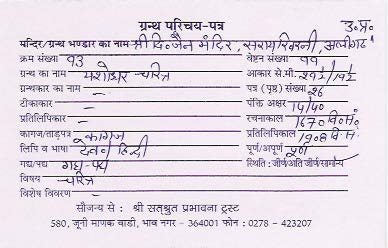 ग्रन्थ परिचय-पत्र उ.प्र.
मन्दिर/ग्रन्थ भण्डार का नाम श्री दि. जैन मंदिर, सराय
क्रम संख्या १३ वेष्टन संख्या ११
ग्रन्थ का नाम यशोधर-चरित्र आकार से.मी.
ग्रन्थकार का नाम — पत्र (पृष्ठ) संख्या २६
टीकाकार — पंक्ति अक्षर 14/40
प्रतिलिपिकार — रचनाकाल 1670 वि.सं.
कागज/ताड़पत्र कागज प्रतिलिपिकाल 1908 वि.सं.
लिपि व भाषा हिन्दी पूर्ण/अपूर्ण पूर्ण
गद्य/पद्य गद्य-पद्य स्थिति : जीर्ण/अति जीर्ण/सामान्य
विषय चरित्र
विशेष विवरण —
सौजन्य से : श्री सत्श्रुत प्रभावना ट्रस्ट
580, जूनी माणक वाडी, भाव नगर – 364001 फोन : 0278 – 423207